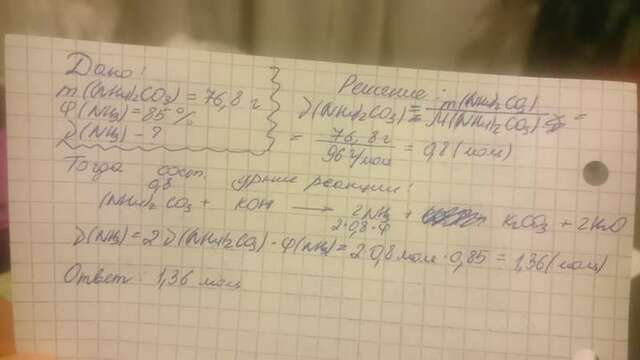 Дано:
m((NH₄)₂CO₃) = 76,8 г
φ(NH₃) = 85 %
ν(NH₃) - ?
Решение:
ν((NH₄)₂CO₃) = m((NH₄)₂CO₃) / M((NH₄)₂CO₃) =
= 76,8 г / 96 г/моль = 0,8 (моль)
Тогда сост. ур-ние реакции:
0,8
(NH₄)₂CO₃ + KOH → 2NH₃ + K₂CO₃ + 2H₂O
2·0,8·φ
ν(NH₃) = 2ν((NH₄)₂CO₃)·φ(NH₃) = 2·0,8моль·0,85 = 1,36(моль)
Ответ: 1,36 моль